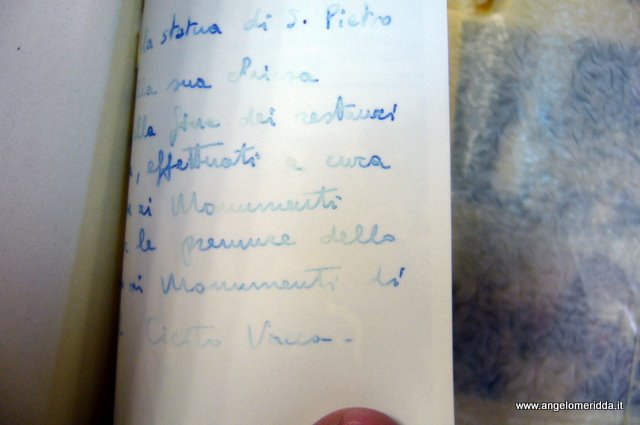 la statua di S. Pietro
la sua chiesa
lla fine dei restauri
, effettuati a cura
ai Monumenti
le premure dello
ni Monumenti di
Vacca -
www.angelomeridda.it